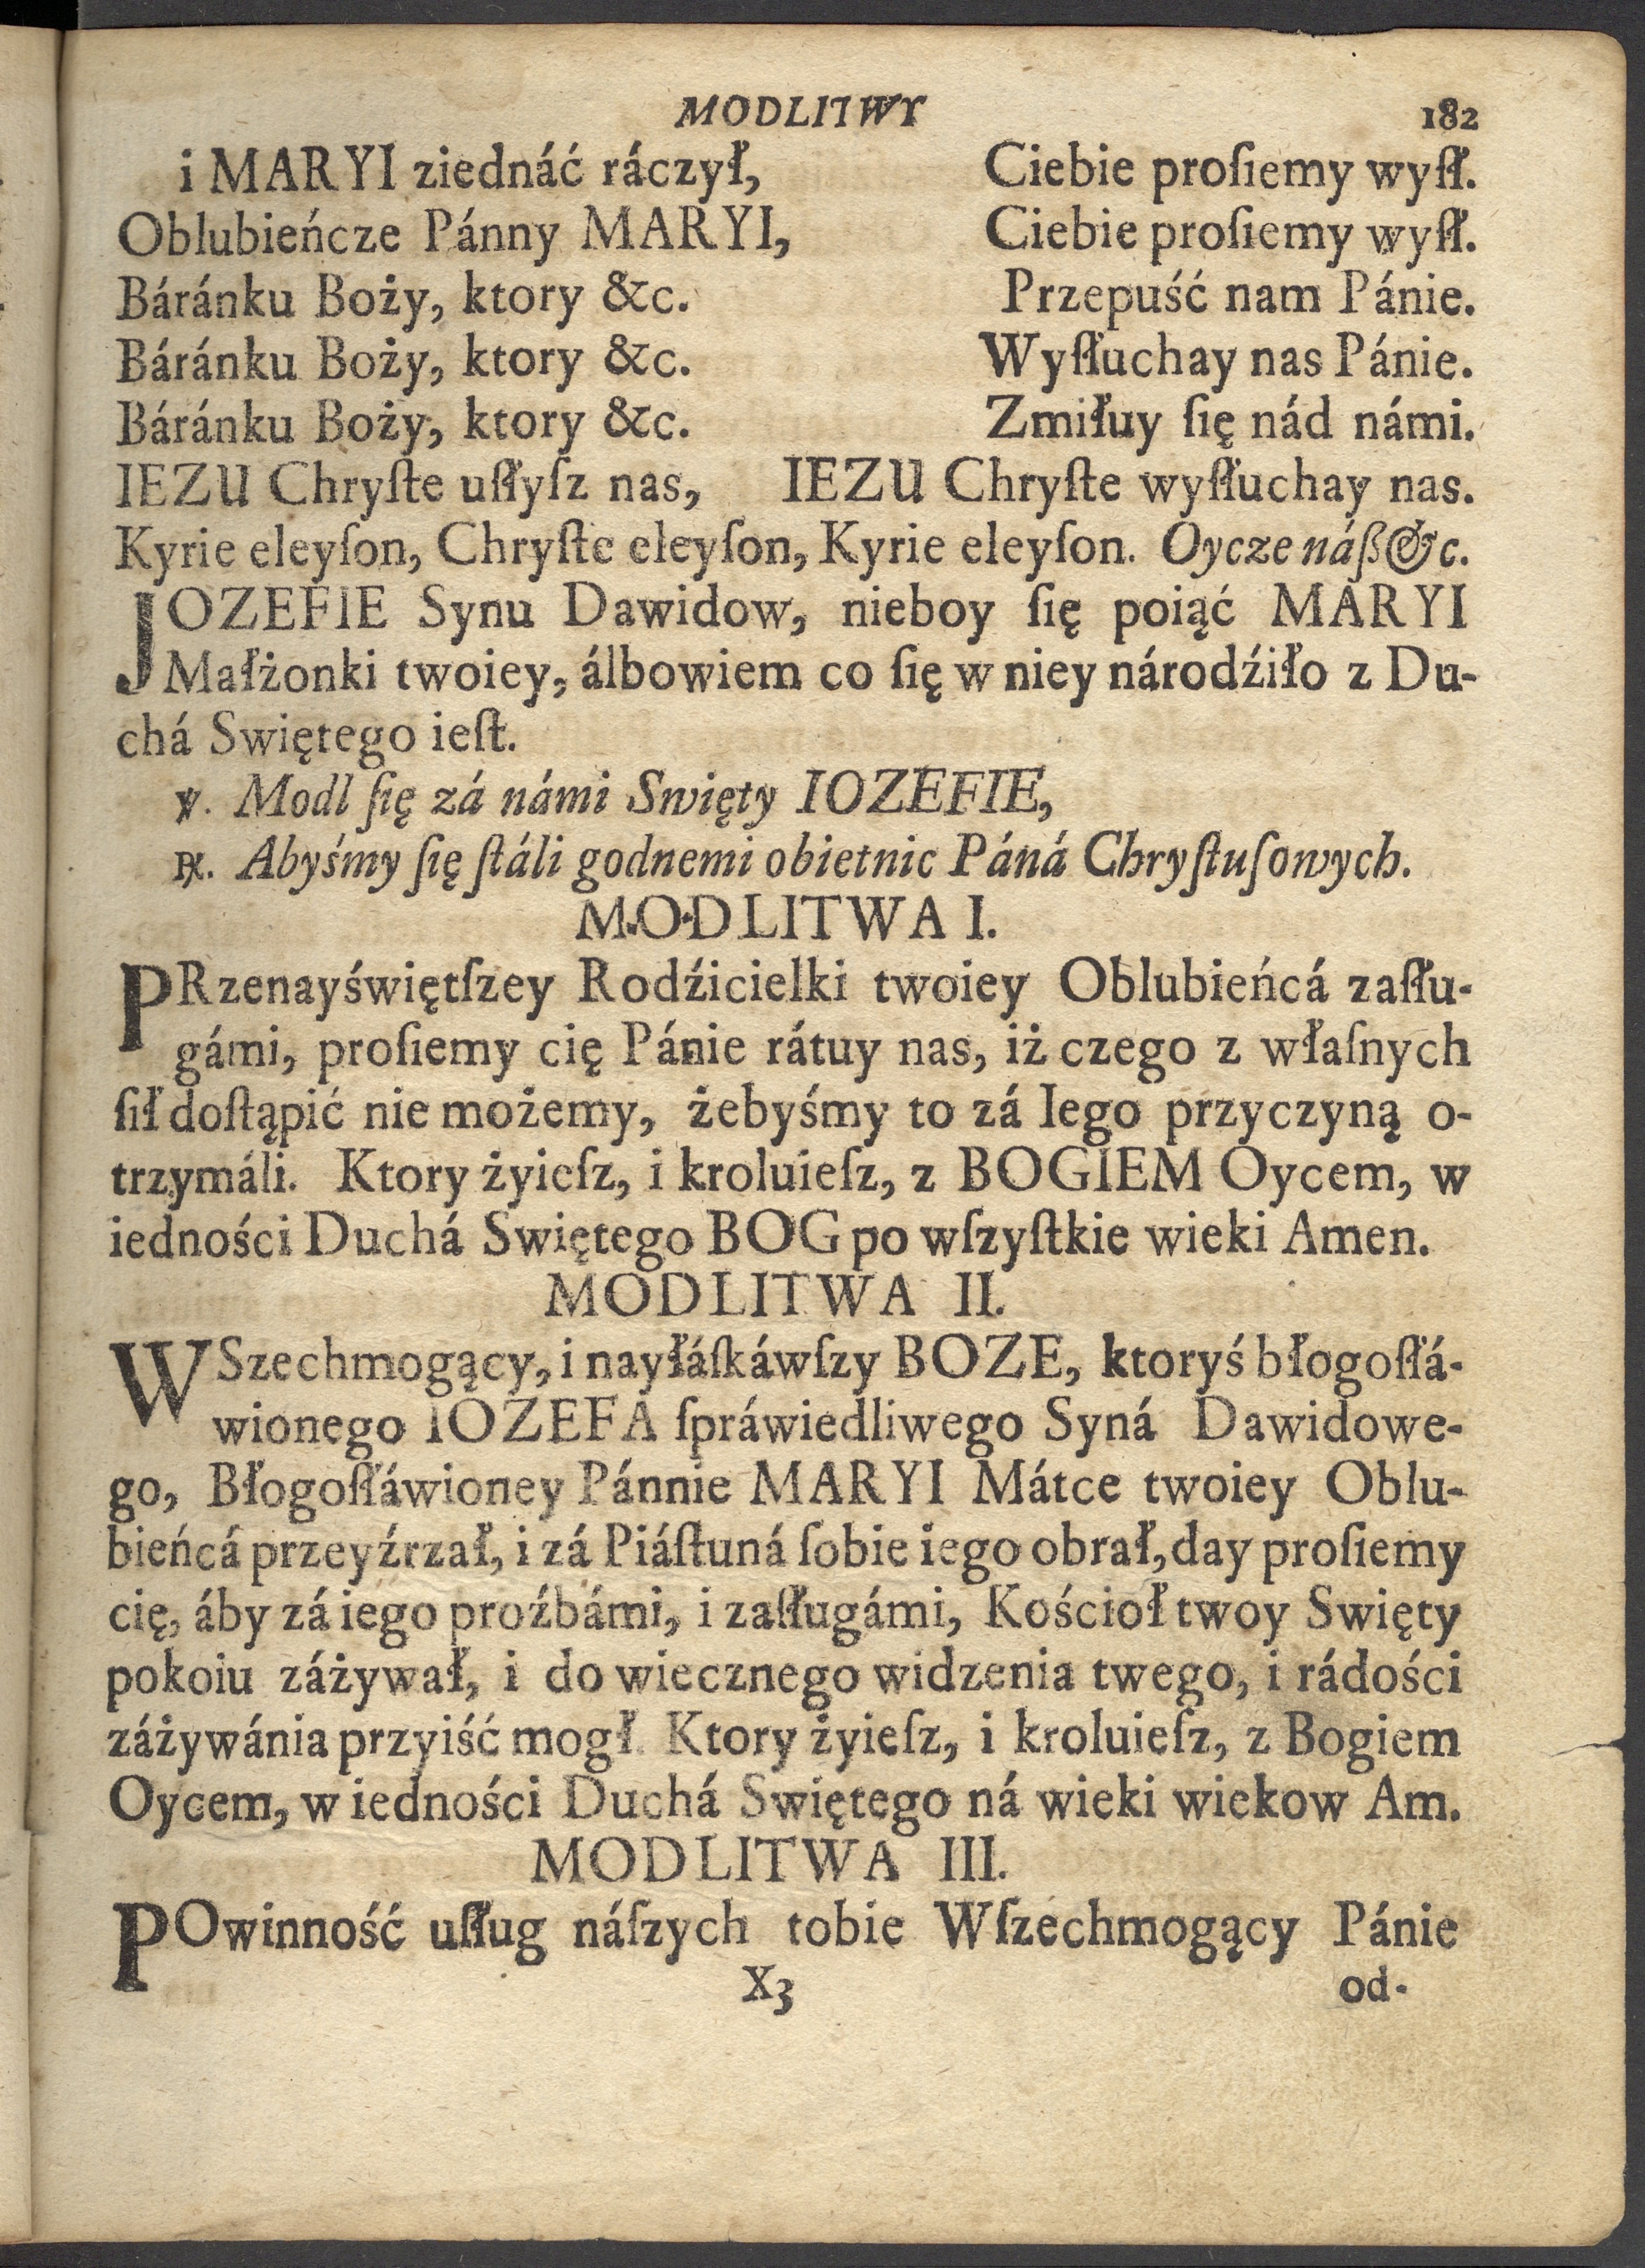 MODLITWY 182
i MARYI ziednáć ráczył, Ciebie proſiemy wyſł.
Oblubieńcze Pánny MARYI, Ciebie proſiemy wyſł.
Báránku Boży, ktory &c. Przepuść nam Pánie.
Báránku Boży, ktory &c. Wyſłuchay nas Pánie.
Báránku Boży, ktory &c. Zmiłuy ſię nád námi.
IEZU Chryſte uſłyſz nas, IEZU Chryſte wyſłuchay nas.
Kyrie eleyſon, Chryſte eleyſon, Kyrie eleyſon. Oycze náß &c.
JOZEFIE Synu Dawidow, nieboy ſię poiąć MARYI
Małżonki twoiey, álbowiem co ſię w niey národźiło z Du-
chá Swiętego ieſt.
℣. Modl ſię zá námi Swięty IOZEFIE,
℟. Abyśmy ſię ſtáli godnemi obietnic Páná Chryſtuſowych.
MODLITWA I.
PRzenayświętſzey Rodźicielki twoiey Oblubieńcá zaſłu-
gámi, proſiemy cię Pánie rátuy nas, iż czego z właſnych
ſił doſtąpić nie możemy, żebyśmy to zá Iego przyczyną o-
trzymáli. Ktory żyieſz, i kroluieſz, z BOGIEM Oycem, w
iedności Duchá Swiętego BOG po wſzyſtkie wieki Amen.
MODLITWA II.
WSzechmogący, i nayłáſkáwſzy BOZE, ktoryś błogoſłá-
wionego IOZEFA ſpráwiedliwego Syná Dawidowe-
go, Błogoſłáwioney Pánnie MARYI Mátce twoiey Oblu-
bieńcá przeyźrzał, i zá Piáſtuná ſobie iego obrał, day proſiemy
cię, áby zá iego proźbámi, i zaſługámi, Kościoł twoy Swięty
pokoiu záżywał, i do wiecznego widzenia twego, i rádości
záżywánia przyiść mogł. Ktory żyieſz, i kroluieſz, z Bogiem
Oycem, w iedności Duchá Swiętego ná wieki wiekow Am.
MODLITWA III.
POwinność uſług náſzych tobie Wſzechmogący Pánie
X3 od-